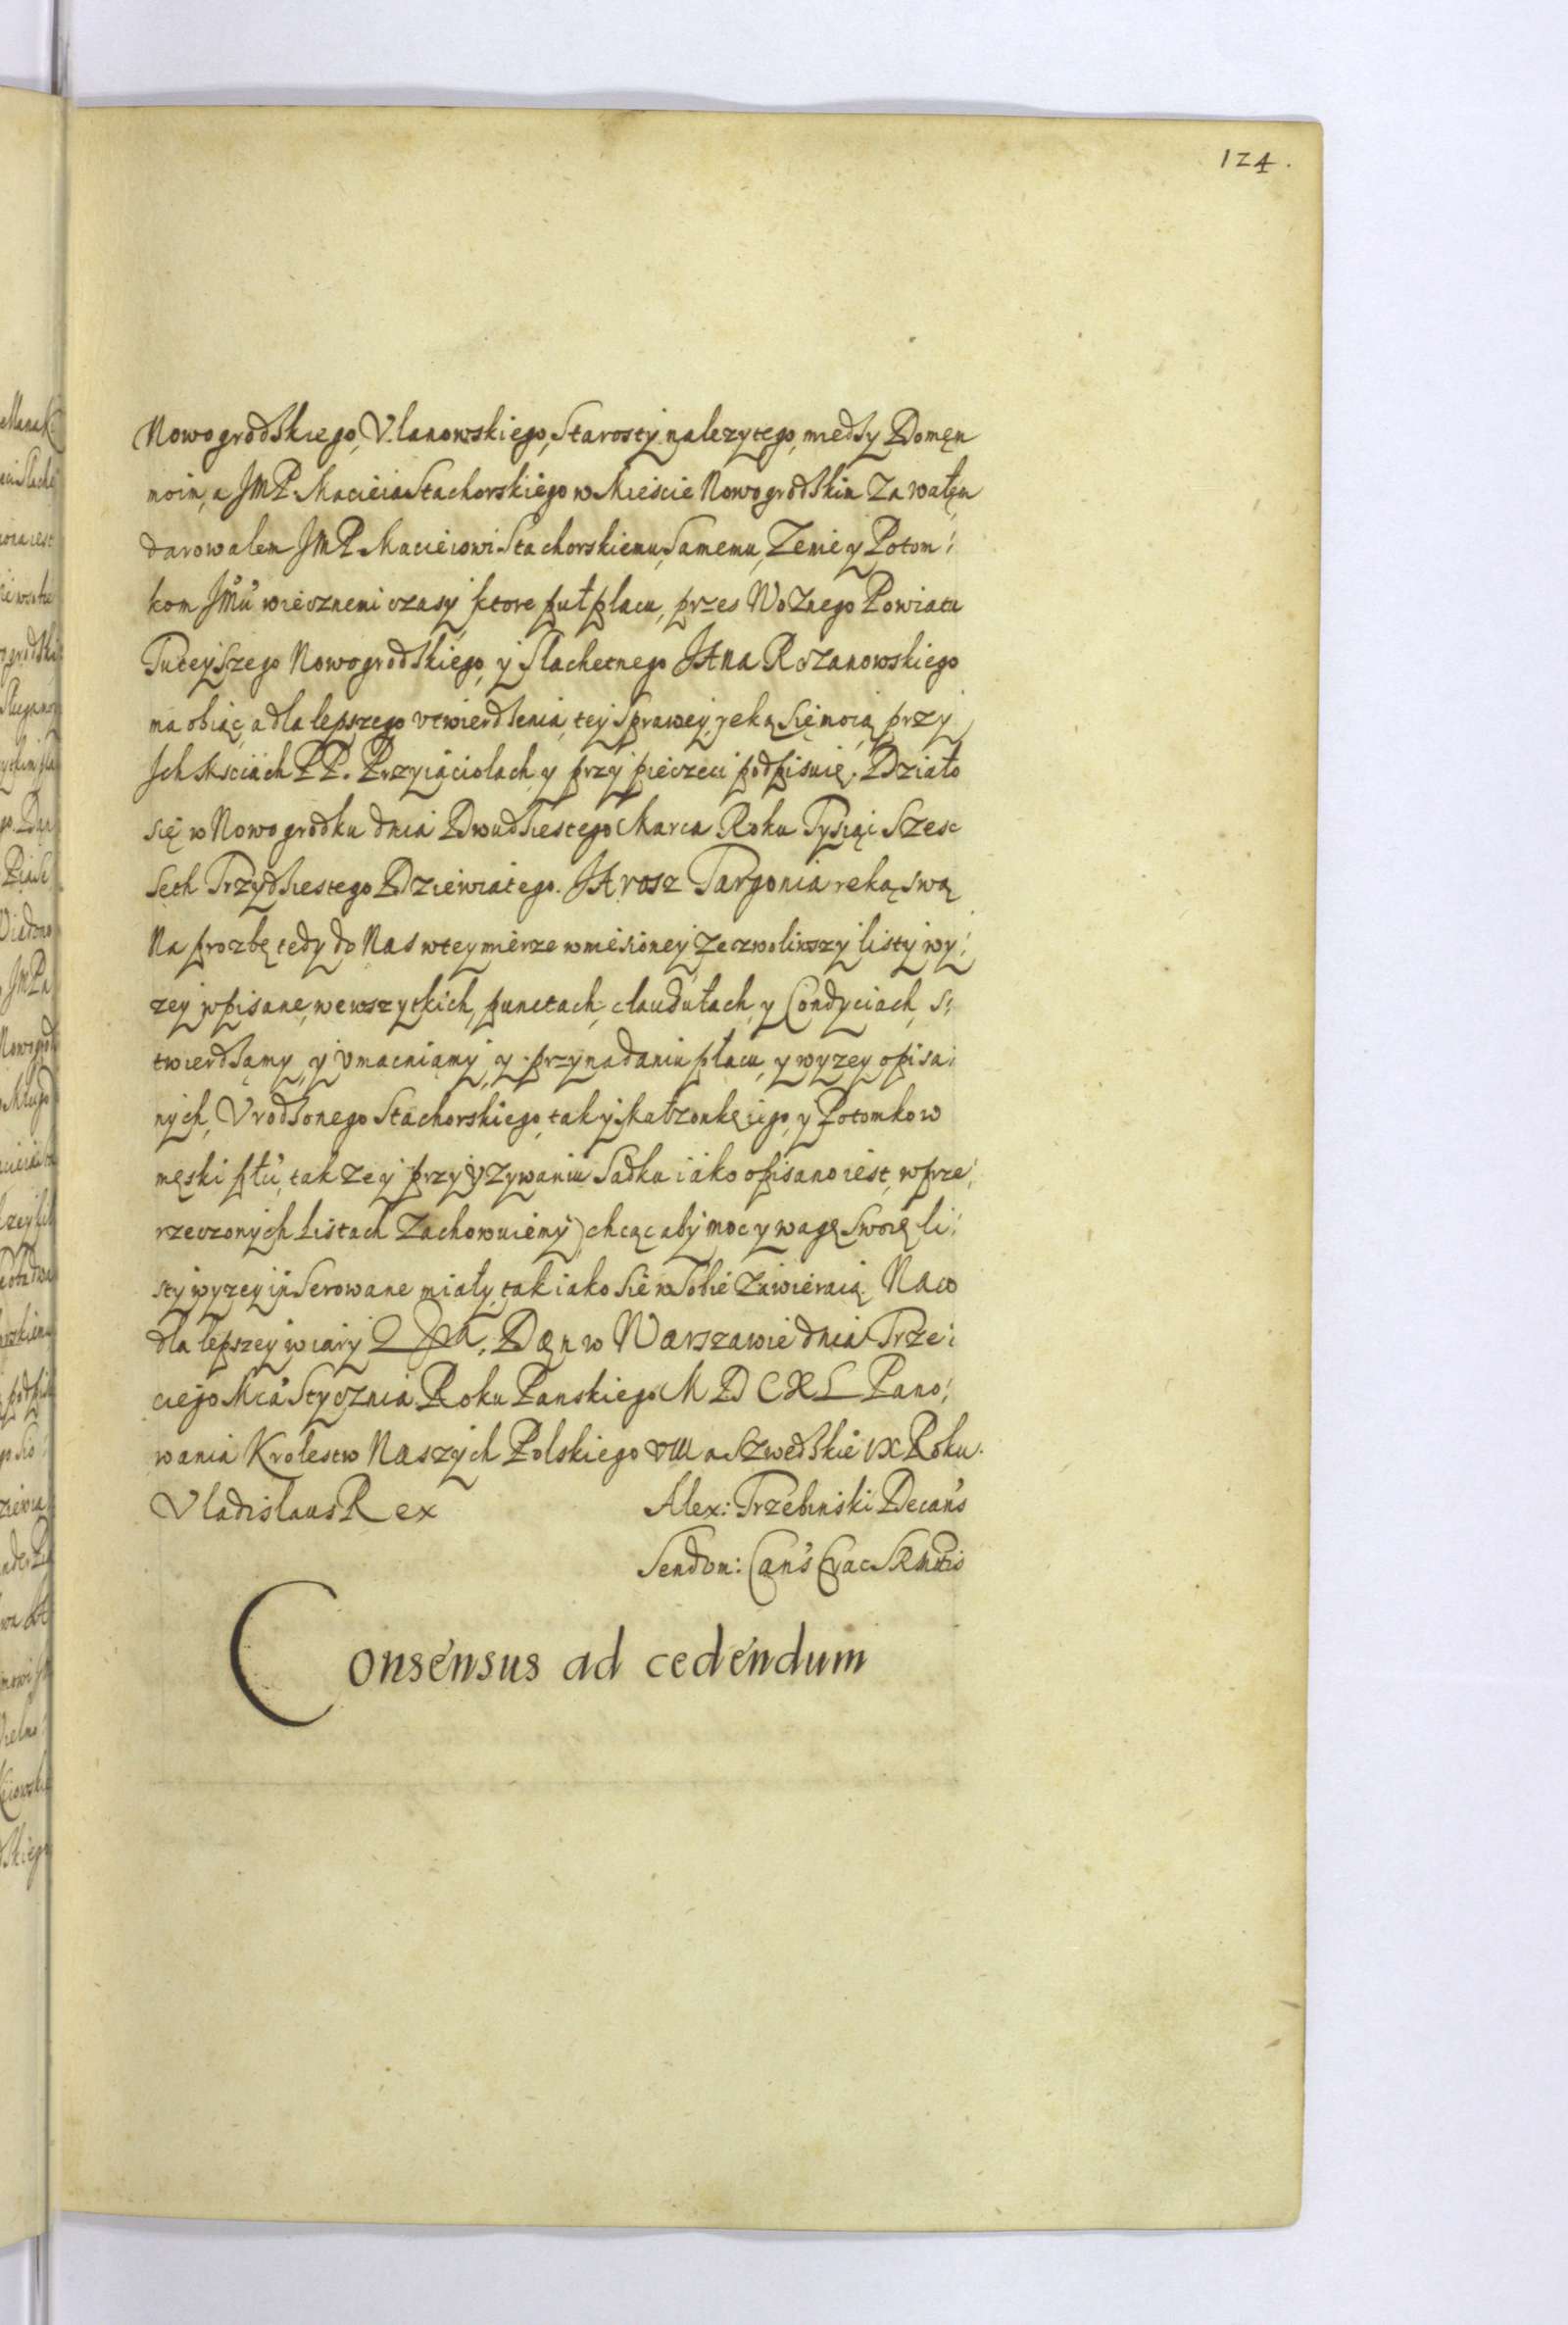 124.
Nowogrodskiego, Vlanowskiego, Starosty nalezytego, miedsy Domęn
moim, a JMP Macieia Stachorskiego w Mieście Nowogrodskim Za wałęm
darowalem JMP Maciéiowi Stachorskiemu, Samemu, Zenie y Potom:
kom Jmu wiecznemi czasy ktore puł placu, przes Woznego Powiatu
Tuteyszego Nowogrodskiego, y Slachetnego JAna Rozanowskiego
ma obiąć, a dla lepszego vtwierdsenia, tey sprawey, reką się moią przy
Ich Msciach PP. Przyiaciolach y przy pieczeci podpisuię. Działo
się w Nowogrodku dnia Dwudsiestego Marca Roku Tysiąc Szesc
Seth Trzydsiestego Dziewiatego. JArosz Targonia reką swą
Na prozbę tedy do Nas w tey mierze wniesioney zezwoliwszy listy wy:
zey wpisane, we wszytkich, punctach, clausułach, y Condyciach, s:
twierdsamy, y vmacniamy, y przy nadaniu płacu, y wyzey opisa:
nych, Vrodsonego Stachorskiego, tak y Małzonkę iego, y Potomkow
męski płci, tak ze y przy vzywaniu Sadku iako opisano iest, w prze:
rzeczonych Listach Zachowuiemy, chcąc aby moc y wagę swoię li:
sty wyzey inserowane miały, tak iako sie w sobie zawieraią. Na co
dla lepszey wiary &c. Dan w Warszawie dnia Trze:
ciego Mca Stycznia Roku Panskiego MDCXL Pano:
wania Krolestw Naszych Polskiego VIII a Szwedskie IX Roku.
Vladislaus Rex Alex: Trzebinski Decan's
Sendom: Can's Crac SRMttis
Consensus ad cedendum